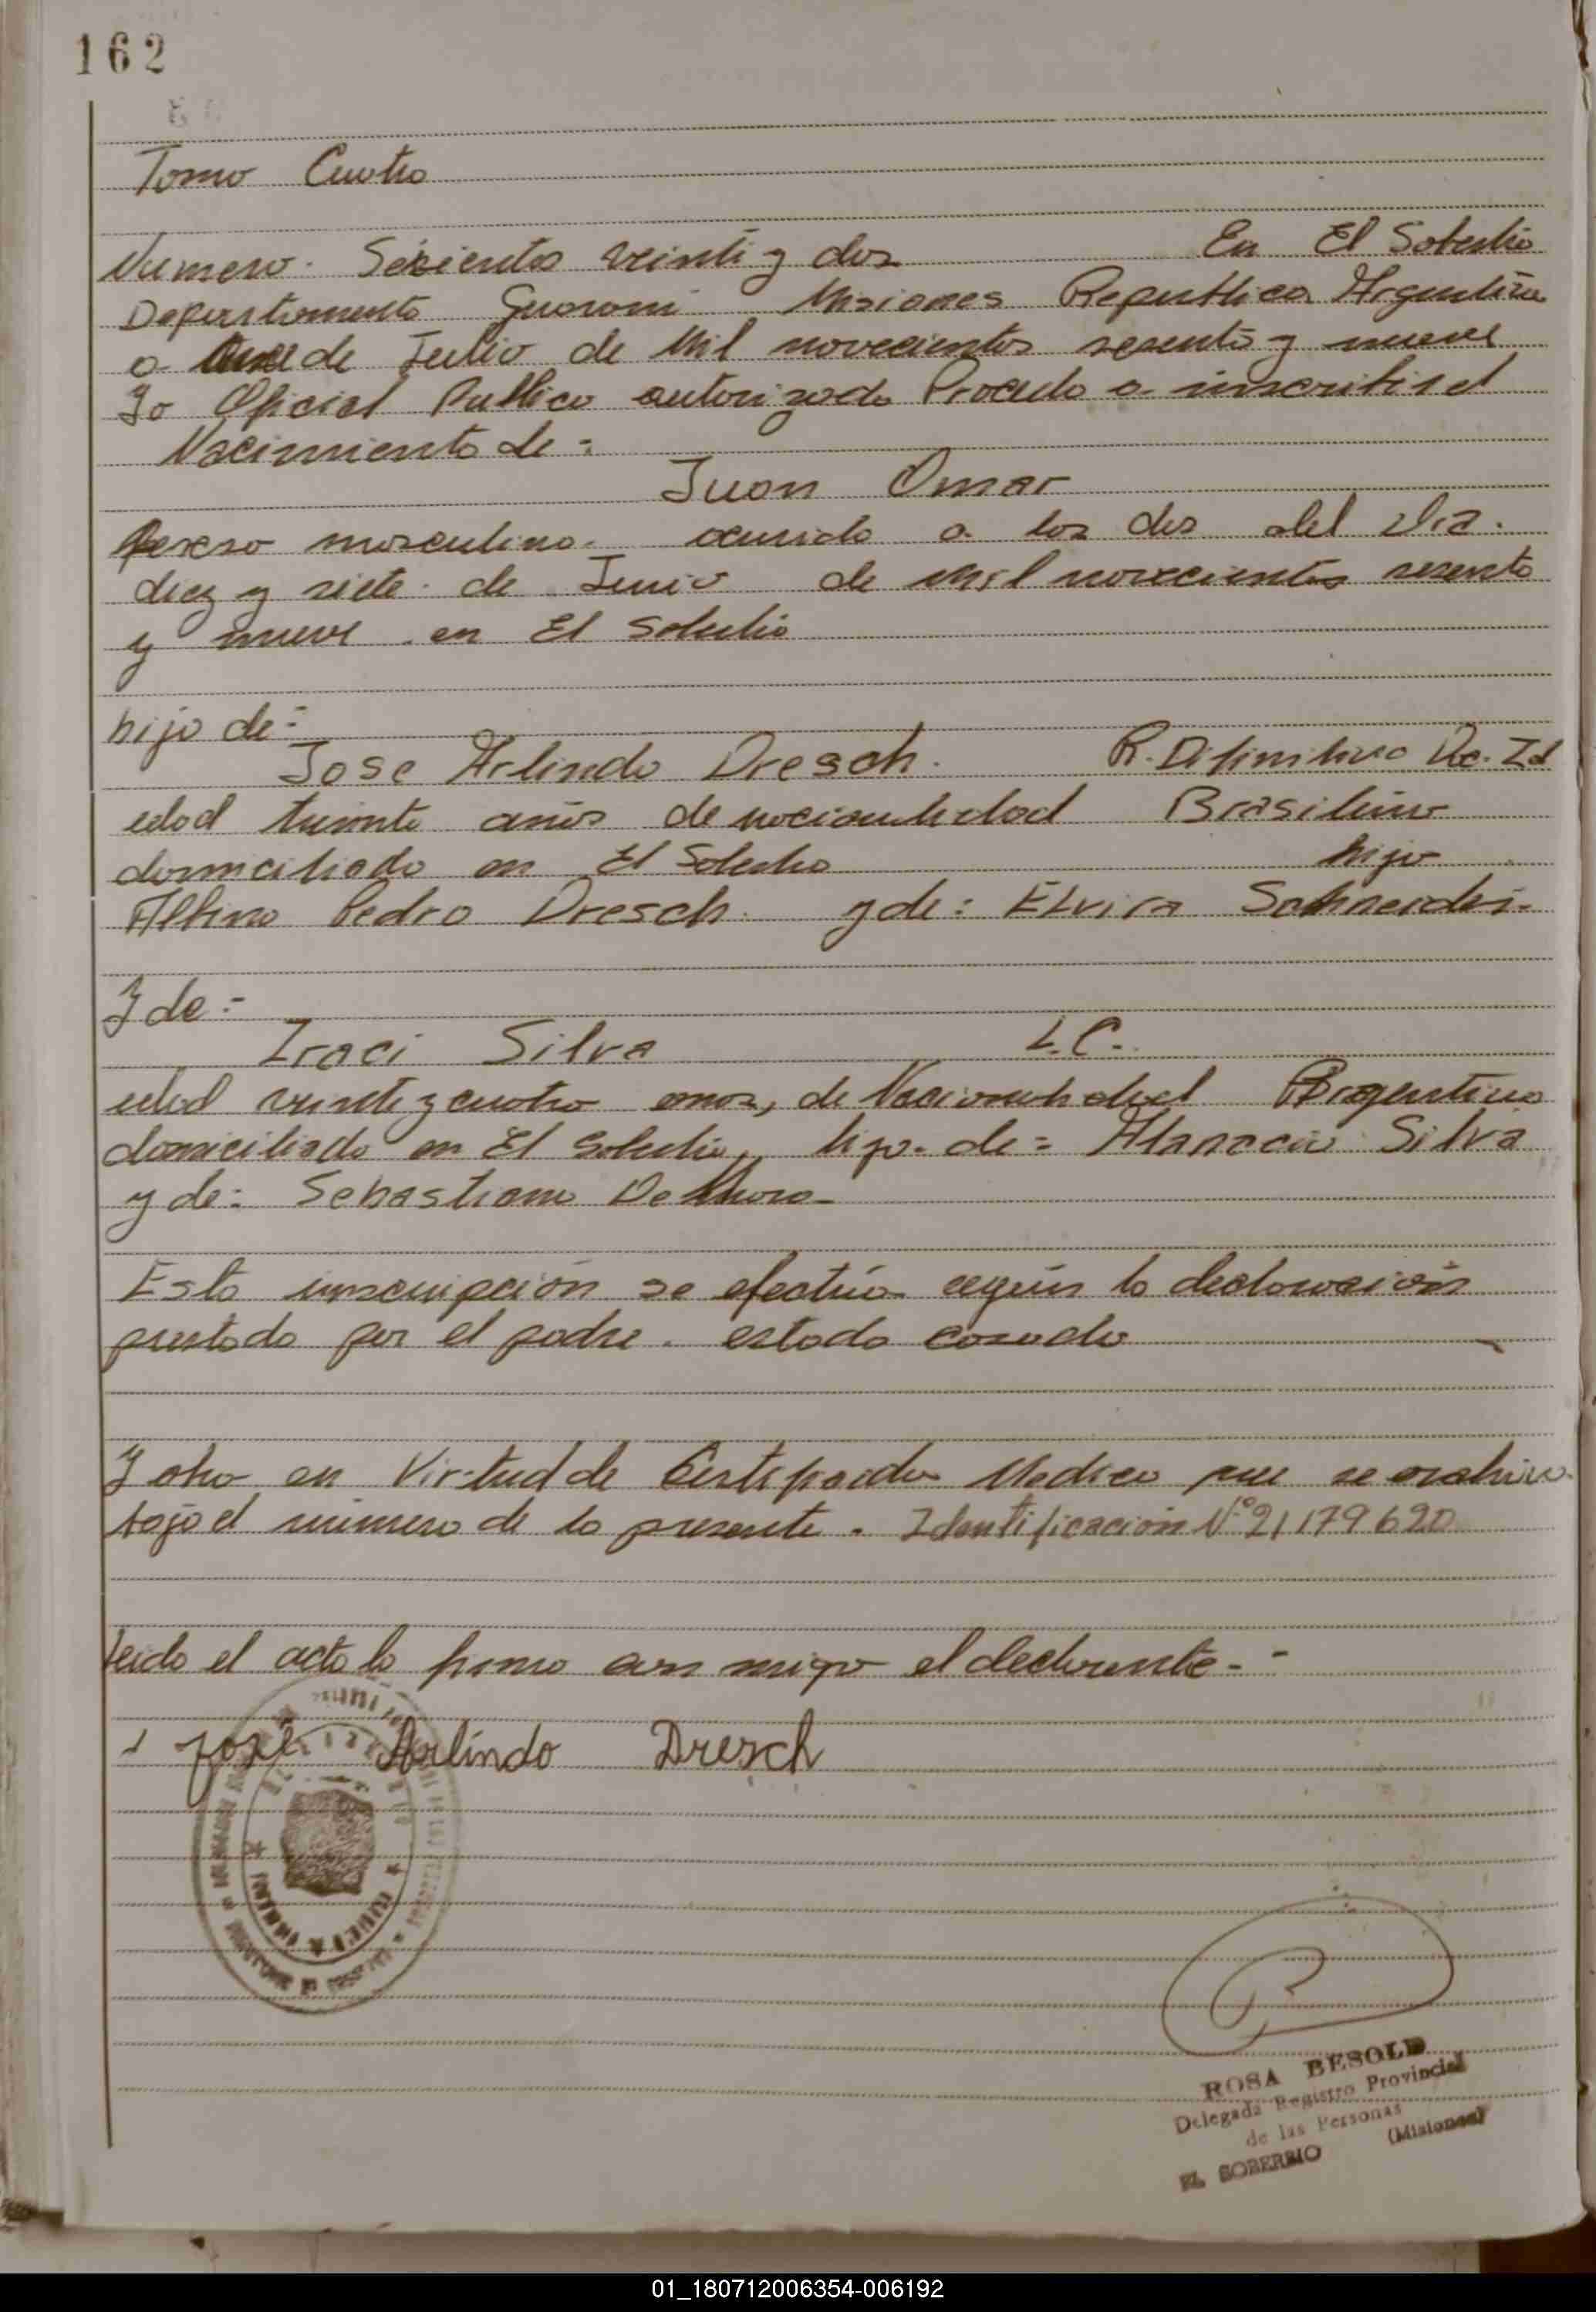 162
Tomo Cuatro
Numero. Seicientos veinti y dos En El Soberbio
Departamento Guarani Misiones Republica Argentina
a de Julio de Mil novecientos sesenta y nueve
Yo Oficial Publico autorizado Procedo a inscribir el
Nacimiento de:
Juan Omar
sexso masculino. ocurrido a las dos del dia.
diez y siete de Junio de Mil novecientos sesenta
y nueve en El Soberbio
hijo de:
Jose Arlindo Dresch. R. Difinitivo De. Id
edad treinta años de nacionalidad Brasilero
domiciliado en El Soberbio hijo
Albino Pedro Dresch. y de: Elvira Schneider.
Y de:
Iraci Silva L.C.
edad veinte y cuatro años, de Nacionalidad Argentina
domiciliado en El Soberbio, hijo. de: Atanacio Silva
y de: Sebastiana De
Esta inscripción se efectúa según la declaración
prestada por el padre. estado casado
Y obro en Virtud de Certificado Medico que se archiva
bajo el número de la presente. Identificacion Nº 21179620
Leida el acta la firma con migo el declarante.-
José Arlindo Dresch
ROSA BESOLD
Delegada Registro Provincial
de las Personas
EL SOBERBIO (Misiones)
01_180712006354-006192